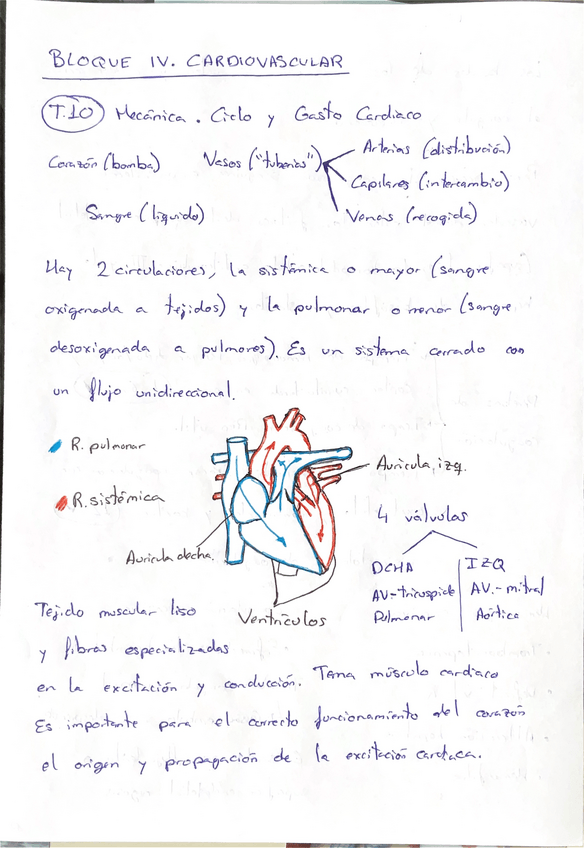 BLOQUE IV. CARDIOVASCULAR
T.10 Mecánica. Ciclo y Gasto Cardiaco
Corazón (bomba) Vasos ("tuberias") Arterias (distribución)
Capilares (intercambio)
Sangre (líquido) Venas (recogida)
Hay 2 circulaciones, la sistémica o mayor (sangre
oxigenada a tejidos) y la pulmonar o menor (sangre
desoxigenada a pulmones). Es un sistema cerrado con
un flujo unidireccional.
R. pulmonar
R. sistémica
Auricula, izq.
Auricula dcha.
Ventrículos
4 válvulas
DCHA IZQ
AV-tricuspide AV.-mitral
Pulmonar Aórtica
Tejido muscular liso
y fibras especializadas
en la excitación y conducción. Tema músculo cardiaco
Es importante para el correcto funcionamiento del corazón
el origen y propagación de la excitación cardiaca.